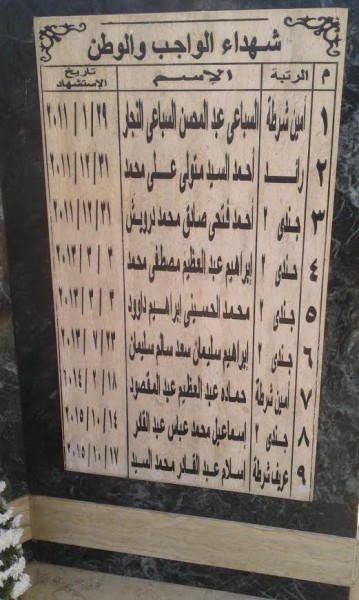 شهداء الواجب والوطن
م الرتبة الإسم تاريخ الإستشهاد
١ أمين شرطة السباعى عبد المحسن السباعى النجار ٢٠١١/١/٢٩
٢ رائد أحمد السيد متولى على محمد ٢٠١١/١٢/٣١
٣ جندى ٢ أحمد فتحى صادق محمد درويش ٢٠١١/١٢/٣١
٤ جندى ٢ إبراهيم عبد العظيم مصطفى محمد ٢٠١٣/٣/٣
٥ جندى ٢ محمد الحسينى إبراهيم داوود ٢٠١٣/٣/٣
٦ جندى ٢ إبراهيم سليمان سعد سالم سليمان ٢٠١٣/٧/٢٣
٧ أمين شرطة حماده عبد العظيم عبد المقصود ٢٠١٤/٢/١٨
٨ جندى ٢ إسماعيل محمد عباس عبد القادر ٢٠١٥/١٠/١٤
٩ عريف شرطة إسلام عبد القادر محمد السيد ٢٠١٥/١٠/١٧